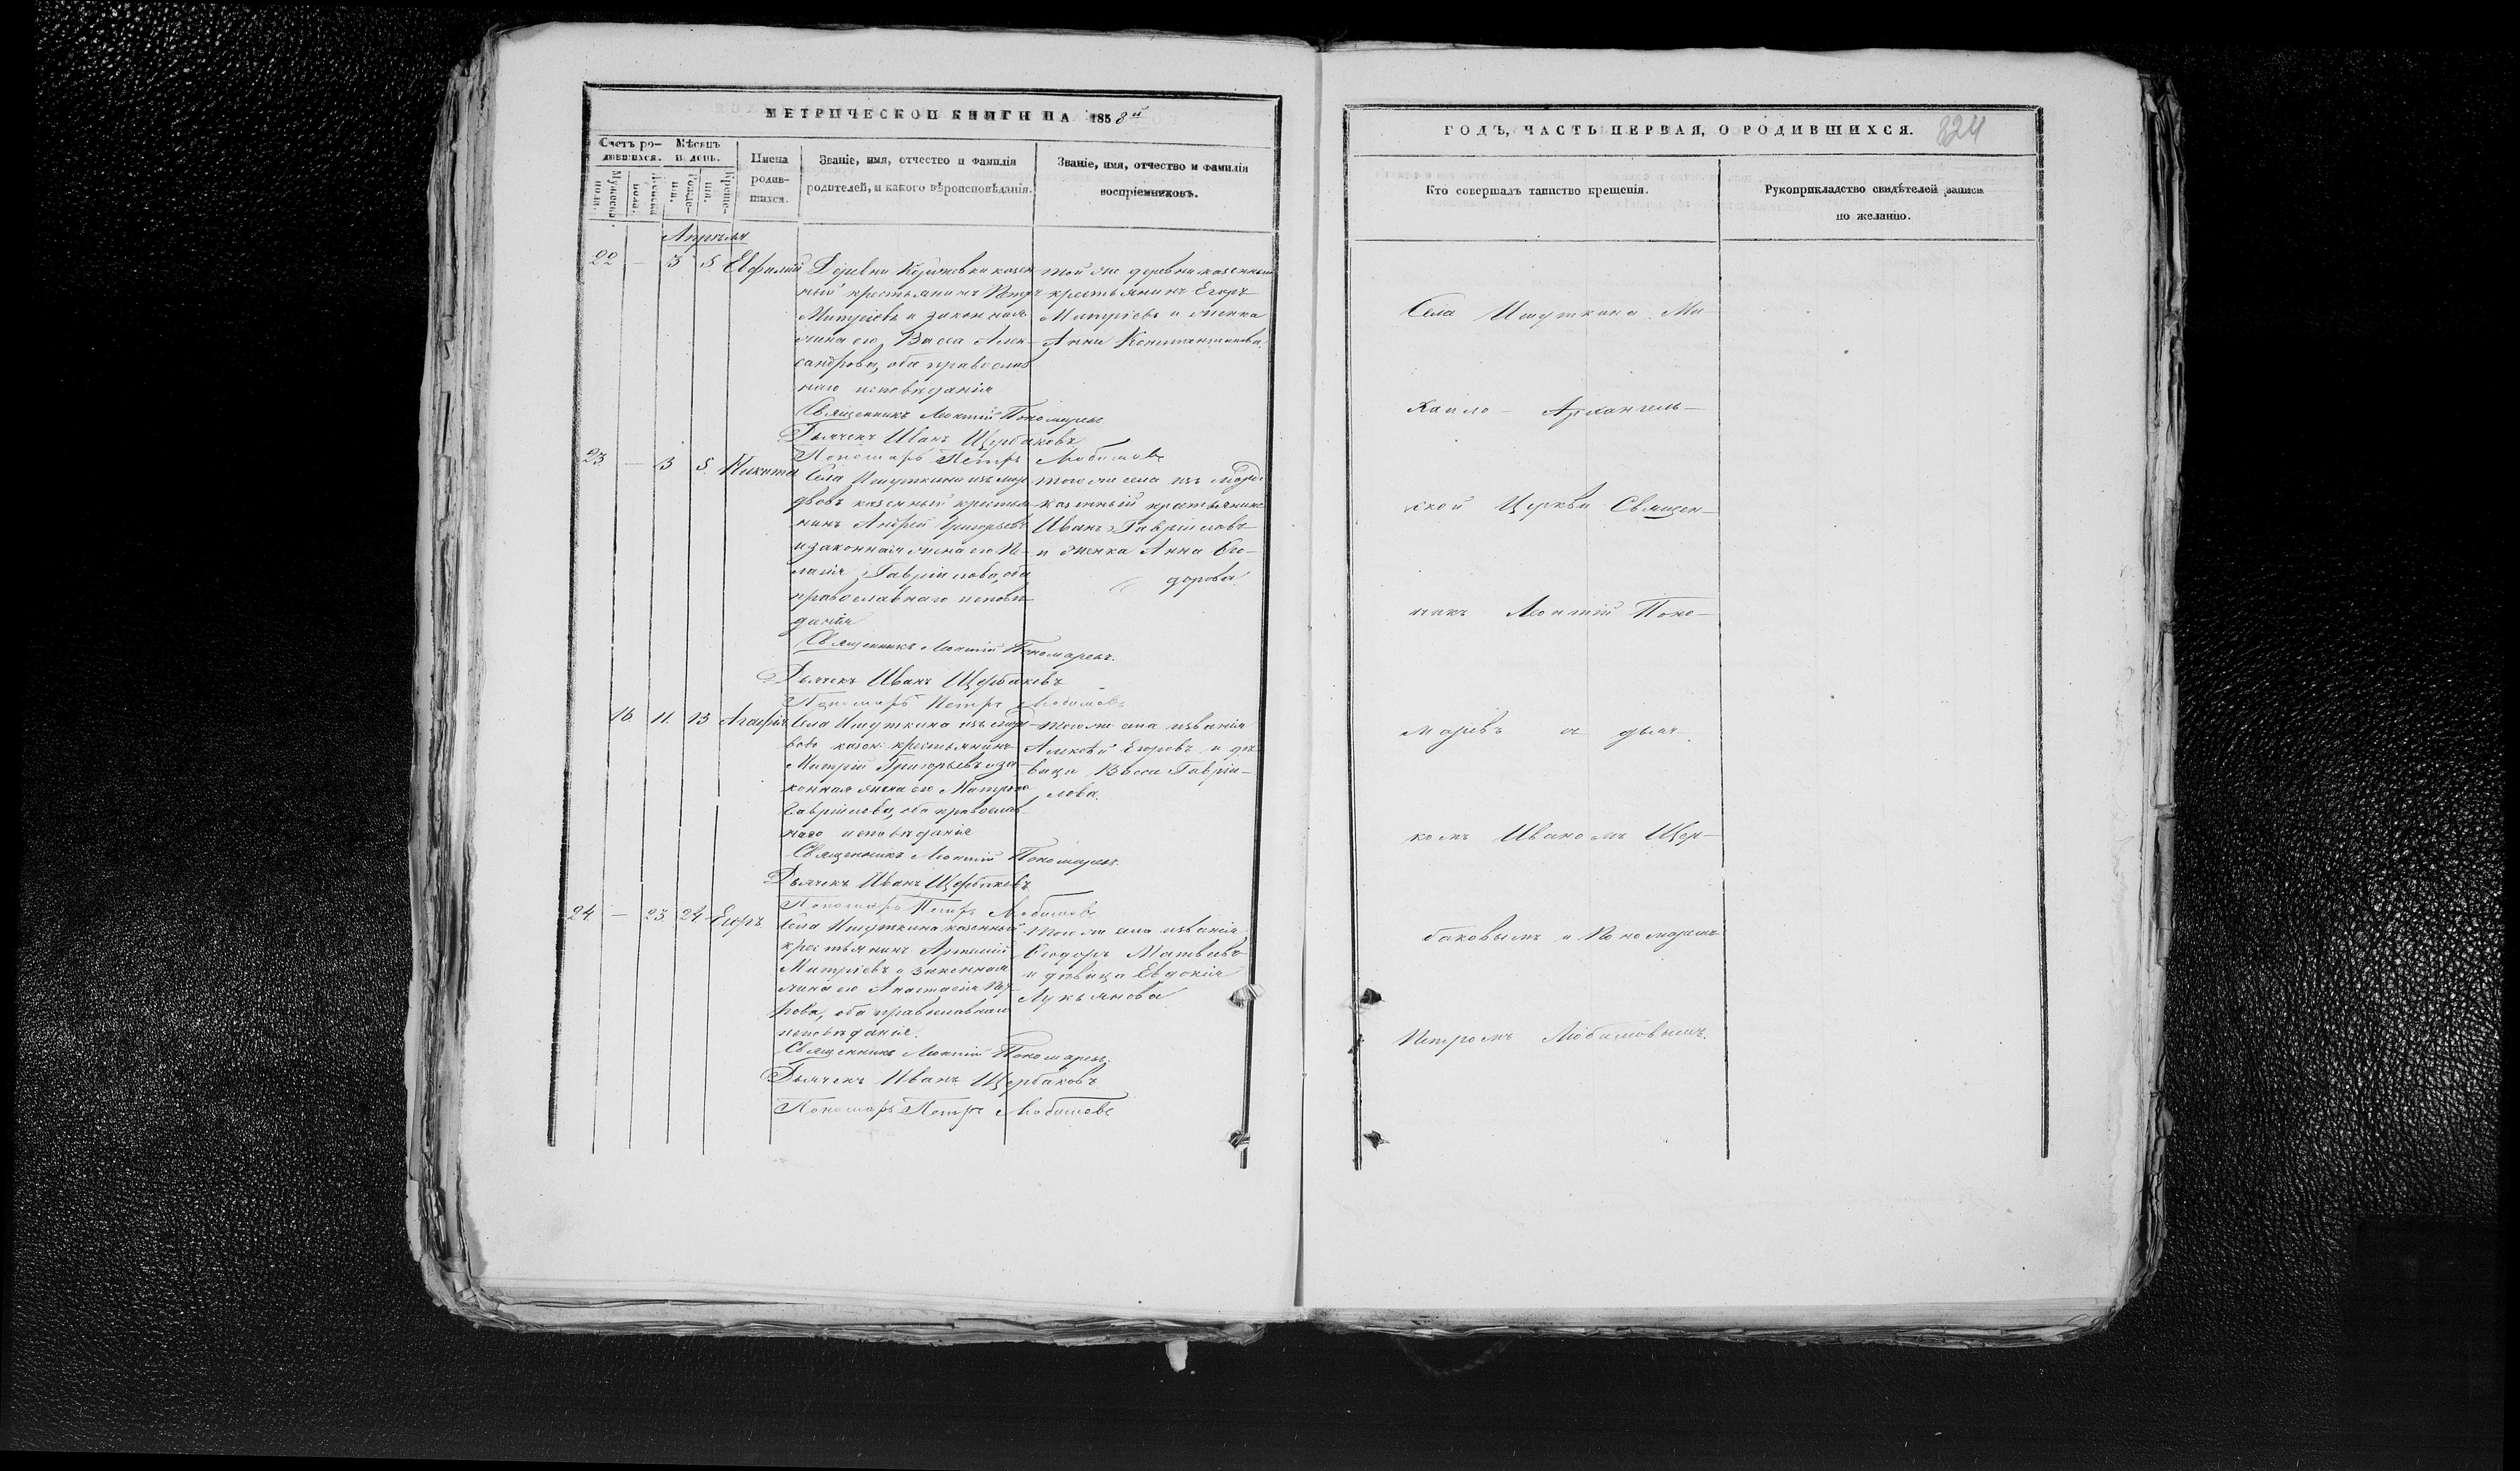 МЕТРИЧЕСКОЙ КНИГИ НА 1858й
Счетъ ро-
дившихся.
Мѣсяцъ
и день.
Мужеска
пола.
Женска
пола.
Рожде-
нія.
Креще-
нія.
Имена
родив-
шихся.
Званіе, имя, отчество и фамилія
родителей, и какого вѣроисповѣданія.
Званіе, имя, отчество и фамилія
воспріемниковъ.
Апрѣля
22 — 3 5 Евфимій
Деревни казен-
ный крестьянинъ Петръ
Митріевъ и законная
жена его Васса Алек-
сандрова, оба православ
наго исповѣданія
той же деревни казенный
крестьянинъ Егоръ
Митріевъ и женка
Анна Константинова.
Священникъ Леонтій Пономаревъ
Дьячекъ Иванъ Щербаковъ
Пономарь Петръ Любимовъ
23 — 3 5. Никита
Села Ишуткина изъ мор
двовъ казенный крестья
нинъ Андрей Григорьевъ
и законная жена его Пе-
лагія Гавріилова, оба
православнаго исповѣ
данія
того же села изъ морд:
казенный крестьянинъ
Иванъ Гавріиловъ
и женка Анна Ѳео-
дорова
Священникъ Леонтій Пономаревъ.
Дьячекъ Иванъ Щербаковъ
Пономарь Петръ Любимовъ
16 11. 13 Агафія
Села Ишуткина изъ морд
вовъ казен: крестьянинъ
Митрій Григорьевъ и за-
конная жена его Матрона
Гавріилова, оба православ-
наго исповѣданія
того же села и званія
Алексѣй Егоровъ и дѣ-
вица Васса Гавріи-
лова.
Священникъ Леонтій Пономаревъ.
Дьячекъ Иванъ Щербаковъ
Пономарь Петръ Любимовъ
24 — 23 24 Егоръ
Села Ишуткина казенный
крестьянинъ Артемій
Митріевъ и законная
жена его Анастасія Пет-
рова, оба православнаго
исповѣданія.
того же села и званія
Ѳеодоръ Матвеевъ
и дѣвица Евдокія
Лукьянова
Священникъ Леонтій Пономаревъ.
Дьячекъ Иванъ Щербаковъ
Пономарь Петръ Любимовъ
ГОДЪ, ЧАСТЬ ПЕРВАЯ, О РОДИВШИХСЯ.
824
Кто совершалъ таинство крещенія.
Рукоприкладство свидѣтелей записи
по желанію.
Села Ишуткина Ми-
хаило- Архангель-
ской Церкви Священ-
никъ Леонтій Поно-
маревъ съ дьяч
комъ Иваномъ Щер-
баковымъ и Пономаремъ
Петромъ Любимовымъ.